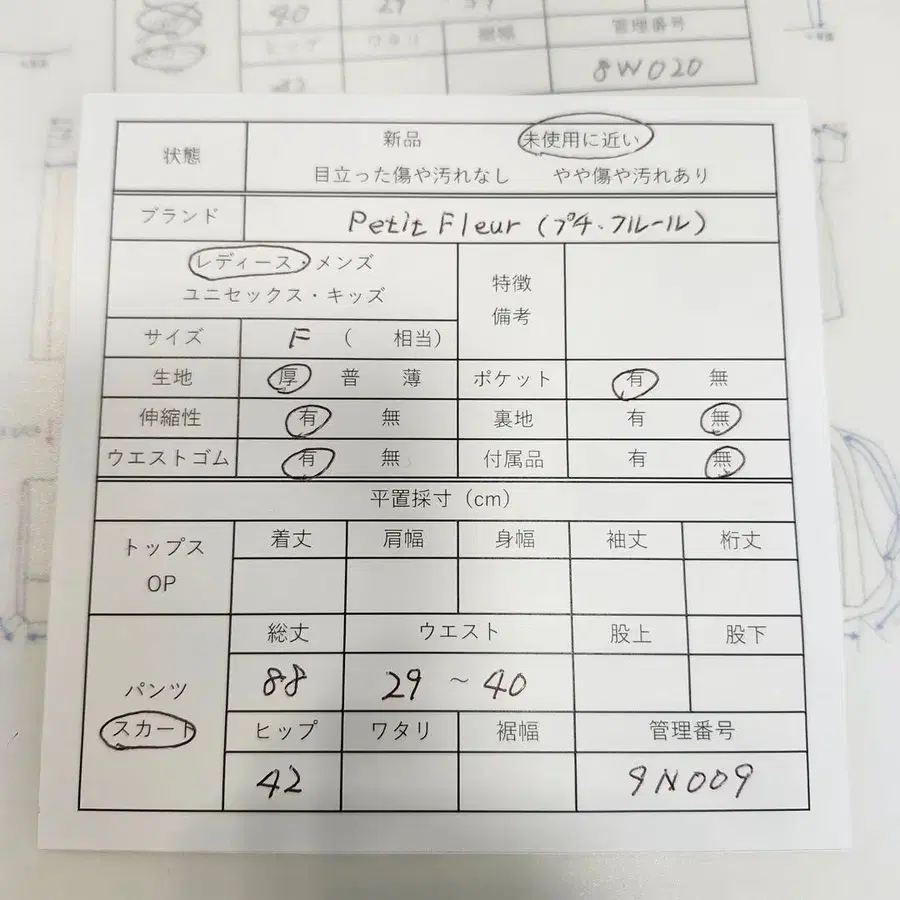 40 29
ヒップ ワタリ 裾幅 管理番号
42 8W020
状態 新品 未使用に近い
目立った傷や汚れなし やや傷や汚れあり
ブランド Petit Fleur (プチ・フルール)
レディース・メンズ
ユニセックス・キッズ
特徴
備考
サイズ F ( 相当)
生地 厚 普 薄 ポケット 有 無
伸縮性 有 無 裏地 有 無
ウエストゴム 有 無 付属品 有 無
平置採寸 (cm)
トップス
OP
着丈 肩幅 身幅 袖丈 裄丈
パンツ
スカート
総丈 ウエスト 股上 股下
88 29 ~ 40
ヒップ ワタリ 裾幅 管理番号
42 9N009